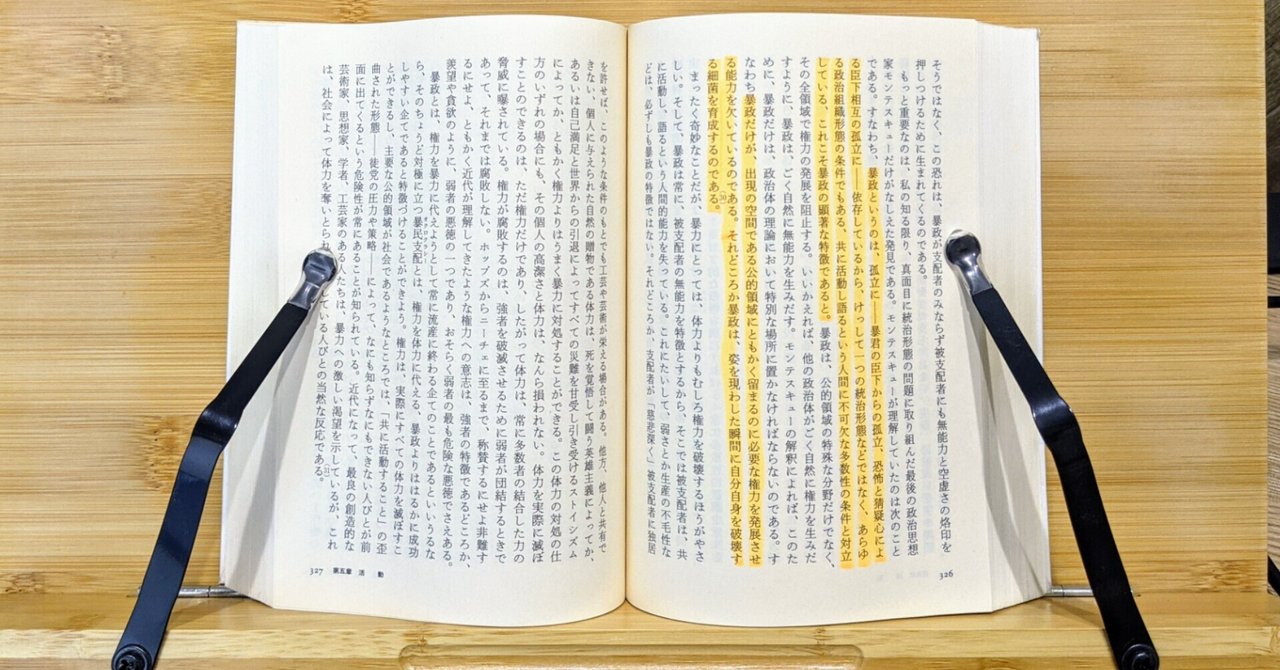 そうではなく、この恐れは、暴政が支配者のみならず被支配者にも無能力と空虚さの烙印を
押しつけるために生まれてくるのである。
もっと重要なのは、私の知る限り、真面目に統治形態の問題に取り組んだ最後の政治思想
家モンテスキューだけがなしえた発見である。モンテスキューが理解していたのは次のこと
である。すなわち、暴政というのは、孤立に――暴君の臣下からの孤立、恐怖と猜疑心によ
る臣下相互の孤立に――依存しているから、けっして一つの統治形態などではなく、あらゆ
る政治組織形態の条件でもある、共に活動し語るという人間に不可欠な多数性の条件と対立
している、これこそ暴政の顕著な特徴であると。暴政は、公的領域の特殊な分野だけでなく、
その全領域で権力の発展を阻止する。いいかえれば、他の政治体がごく自然に権力を生みだ
すように、暴政は、ごく自然に無能力を生みだす。モンテスキューの解釈によれば、このた
めに、暴政だけは、政治体の理論において特別な場所に置かなければならないのである。す
なわち暴政だけが、出現の空間である公的領域にともかく留まるのに必要な権力を発展させ
る能力を欠いているのである。それどころか暴政は、姿を現わした瞬間に自分自身を破壊す
る細菌を育成するのである。(30)
まったく奇妙なことだが、暴力にとっては、体力よりもむしろ権力を破壊するほうがやさ
しい。そして、暴政は常に、被支配者の無能力を特徴とするから、そこでは被支配者は、共
に活動し、語るという人間的能力を失っている。これにたいして、弱さとか生産の不毛性な
どは、必ずしも暴政の特徴ではない。それどころか、支配者が「慈悲深く」被支配者に独居
326
を許せば、このような条件のもとでも工芸や芸術が栄える場合がある。他方、他人と共有で
きない、個人に与えられた自然の贈物である体力は、死を覚悟して闘う英雄主義によってか、
あるいは自己満足と世界からの引退によってすべての災難を甘受し引き受けるストイシズム
によってか、ともかく権力よりはうまく暴力に対処することができる。この体力の対処の仕
方のいずれの場合にも、その個人の高潔さと体力は、なんら損われない。体力を実際に滅ぼ
すことのできるのは、ただ権力だけであり、したがって体力は、常に多数者の結合した力の
脅威に曝されている。権力が腐敗するのは、強者を破滅させるために弱者が団結するときで
あって、それまでは腐敗しない。ホッブズからニーチェに至るまで、称賛するにせよ非難す
るにせよ、ともかく近代が理解してきたような権力への意志は、強者の特徴であるどころか、
羨望や貪欲のように、弱者の悪徳の一つであり、おそらく弱者の最も危険な悪徳でさえある。
暴政とは、権力を暴力に代えようとして常に流産に終わる企てのことであるといいうるな
ら、そのちょうど対極に立つ暴民支配とは、権力を体力に代える、暴政よりははるかに成功
しやすい企てであると特徴づけることができよう。権力は、実際にすべての体力を滅ぼすこ
とができるし、主要な公的領域が社会であるようなところでは、「共に活動すること」の歪
曲された形態――徒党の圧力や策略――によって、なにも知らずなにもできない人びとが前
面に出てくるという危険性が常にあることが知られている。近代になって、最良の創造的な
芸術家、思想家、学者、工芸家のある人たちは、暴力への激しい渇望を示しているが、これ
は、社会によって体力を奪いとられている人びとの当然な反応である。(31)
327 第五章 活 動